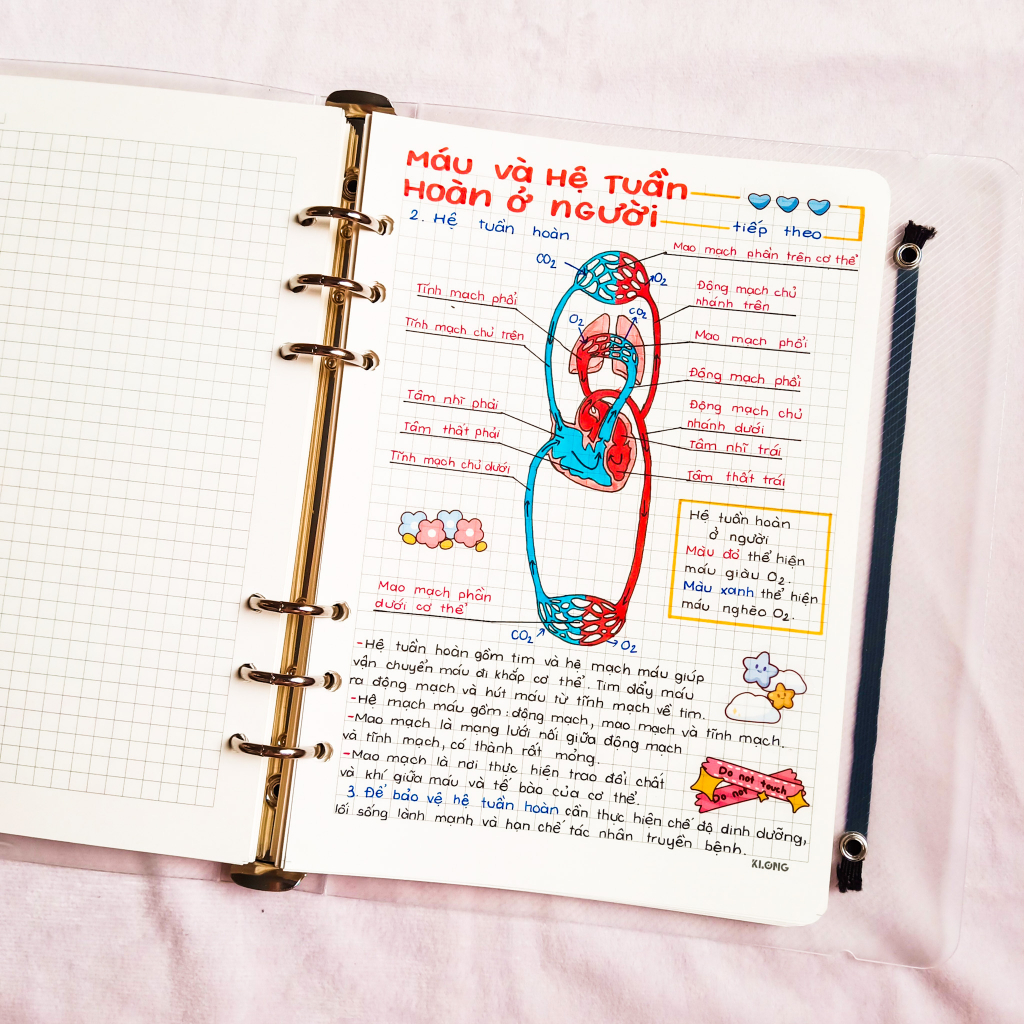 Máu và Hệ Tuần
Hoàn ở người
tiếp theo
2. Hệ tuần hoàn
Mao mạch phần trên cơ thể
CO2
O2
Tĩnh mạch phổi
Động mạch chủ
nhánh trên
O2
CO2
Tĩnh mạch chủ trên
Mao mạch phổi
Động mạch phổi
Tâm nhĩ phải
Động mạch chủ
nhánh dưới
Tâm thất phải
Tâm nhĩ trái
Tĩnh mạch chủ dưới
Tâm thất trái
Hệ tuần hoàn
ở người
Màu đỏ thể hiện
máu giàu O2.
Màu xanh thể hiện
máu nghèo O2.
Mao mạch phần
dưới cơ thể
CO2
O2
-Hệ tuần hoàn gồm tim và hệ mạch máu giúp
vận chuyển máu đi khắp cơ thể. Tim đẩy máu
ra động mạch và hút máu từ tĩnh mạch về tim.
-Hệ mạch máu gồm: động mạch, mao mạch và tĩnh mạch.
-Mao mạch là mạng lưới nối giữa động mạch
và tĩnh mạch, có thành rất mỏng.
-Mao mạch là nơi thực hiện trao đổi chất
và khí giữa máu và tế bào của cơ thể.
3. Để bảo vệ hệ tuần hoàn cần thực hiện chế độ dinh dưỡng,
lối sống lành mạnh và hạn chế tác nhân truyền bệnh.
Do not touch
Do not
KLONG